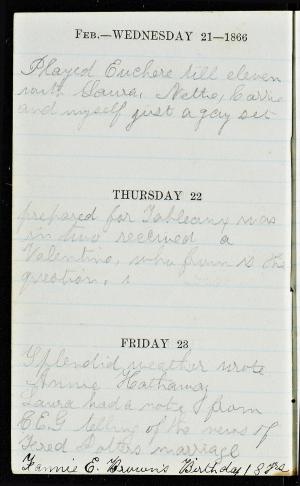 FEB.—WEDNESDAY 21—1866
Played Euchere till eleven
with Laura, Nettie, Carrie
and myself just a gay set
THURSDAY 22
prepared for Tableaux was
in two received a
Valentine, who from is the
question,
FRIDAY 23
Splendid weather wrote
Annie Hathaway
Laura had a note from
C.E.G telling of the news of
Fered marriage
Fannie E. Brown's Birthday 18 yrs